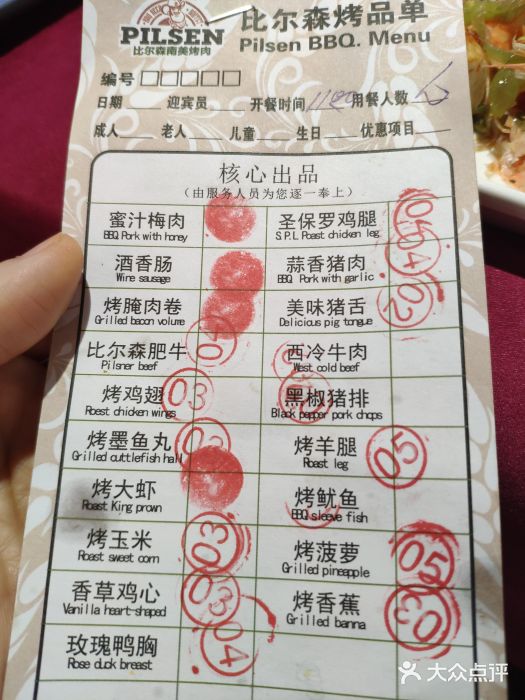 PILSEN
比尔森南美烤肉
比尔森烤品单
Pilsen BBQ. Menu
编号□□□□□
日期 迎宾员 开餐时间 用餐人数
成人 老人 儿童 生日 优惠项目
核心出品
(由服务人员为您逐一奉上)
蜜汁梅肉 圣保罗鸡腿 05
BBQ Pork with honey S.P.L Roast chicken leg
酒香肠 蒜香猪肉 04
Wine sausage BBQ Pork with garlic
烤腌肉卷 美味猪舌 02
Grilled bacon volume Delicious pig tongue
比尔森肥牛 西冷牛肉
Pilsner beef West cold beef
烤鸡翅 03 黑椒猪排
Roast chicken wings Black pepper pork chops
烤墨鱼丸 烤羊腿 05
Grilled cuttlefish hall Roast leg
烤大虾 烤鱿鱼
Roast King prown BBQ sleeve fish
烤玉米 03 烤菠萝 05
Roast sweet corn Grilled pineapple
香草鸡心 03 烤香蕉 03
Vanilla heart-shaped Grilled banna
玫瑰鸭胸 04
Rose duck breast
大众点评